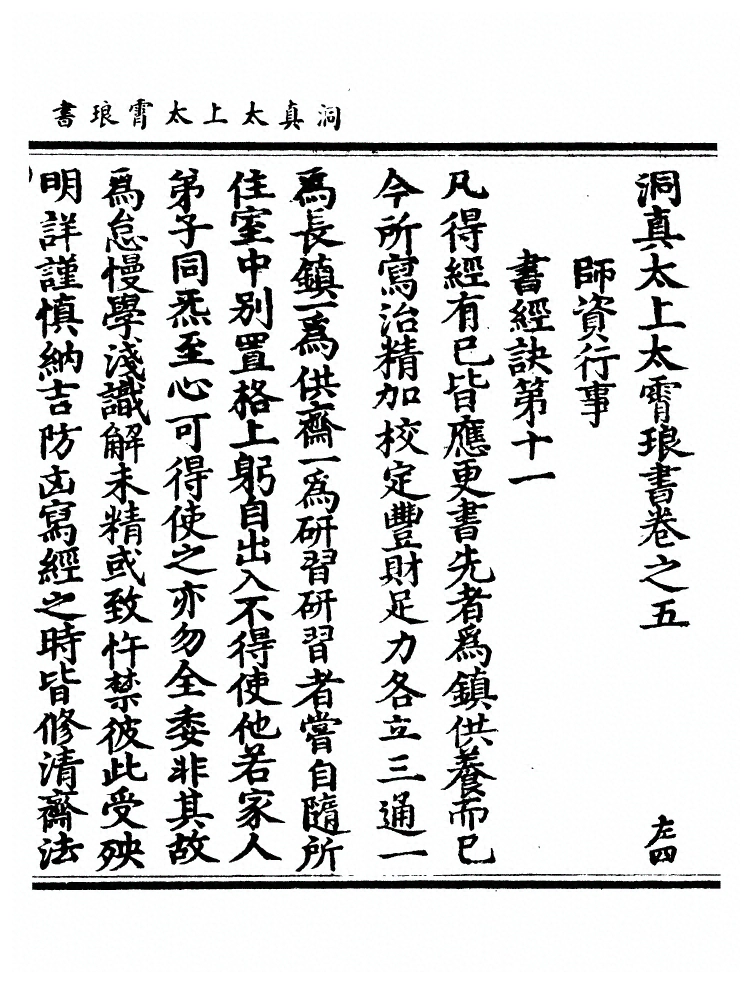 洞真太上太霄琅書
洞真太上太霄琅書卷之五
左四
師資行事
書經訣第十一
凡得經有已皆應更書先者爲鎮供養而已
今所寫治精加校定豐財足力各立三通一
爲長鎮一爲供齋一爲研習研習者嘗自隨所
住室中別置格上躬自出入不得使他若家人
弟子同炁至心可得使之亦勿全委非其故
爲怠慢學淺識解未精或致忤禁彼此受殃
明詳謹慎納吉防凶寫經之時皆修清齋法